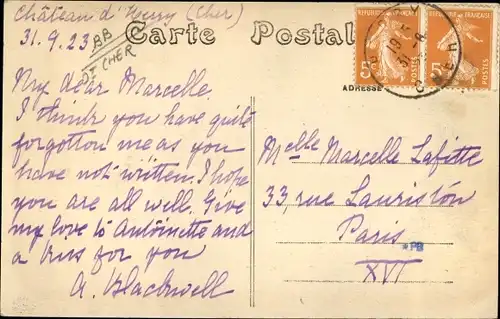 Château d' (Cher)
31.9.23
BB
DT CHER
Carte Postale
RÉPUBLIQUE FRANÇAISE
5c
POSTES
RÉPUBLIQUE FRANÇAISE
5c
POSTES
19
31 -8
CHER
ADRESSE
My dear Marcelle.
I think you have quite
forgotton me as you
have not written. I hope
you are all well. Give
my love to Antoinette and
a kiss for you
A. Blackwell
Melle Marcelle Lafitte
33, rue Lauriston
Paris
*PB
XVI